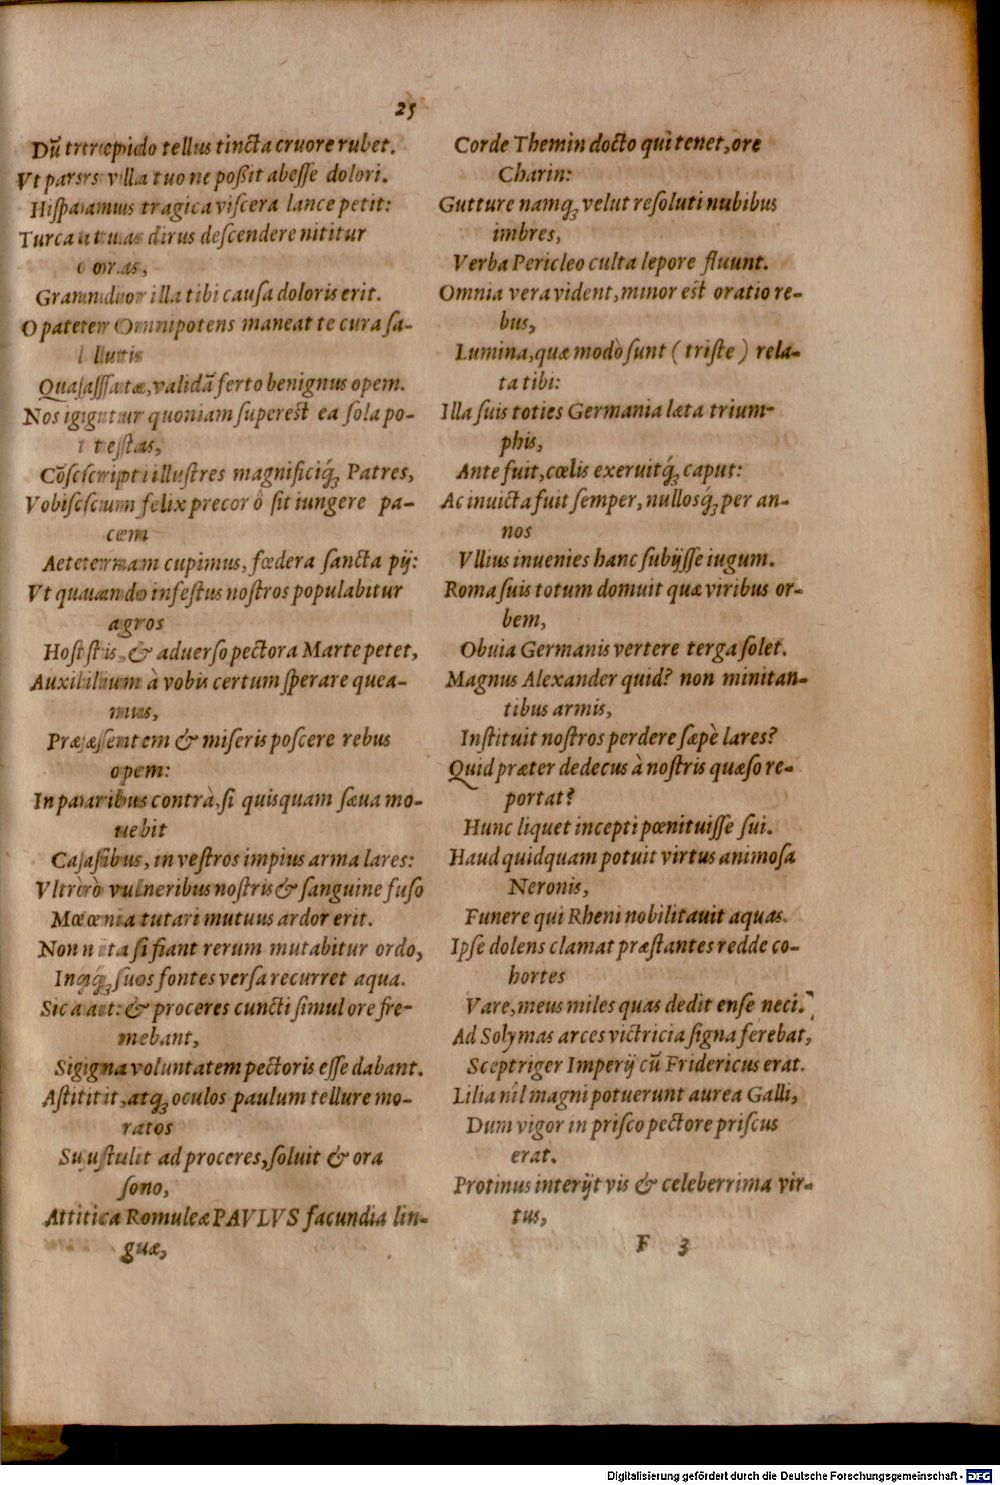 25
Dū trepido tellus tincta cruore rubet.
Vt pars vlla tuo ne poßit abeſſe dolori.
Hiſpanus tragica viſcera lance petit:
Turca tuas dirus deſcendere nititur
oras,
Grandior illa tibi cauſa doloris erit.
O pater Omnipotens maneat te cura ſa-
lutis
Quaſſatæ, validā ferto benignus opem.
Nos igitur quoniam ſupereſt ea ſola po-
teſtas,
Cōſcripti illuſtres magnificiq́ꝫ Patres,
Vobiſcum felix precor ô ſit iungere pa-
cem
Aeternam cupimus, fœdera ſancta pij:
Vt quando infeſtus noſtros populabitur
agros
Hoſtis, & aduerſo pectora Marte petet,
Auxilium à vobis certum ſperare quea-
mus,
Præſentem & miſeris poſcere rebus
opem:
In paribus contrà, ſi quisquam ſæua mo-
uebit
Caſibus, in veſtros impius arma lares:
Vltrò vulneribus noſtris & ſanguine fuſo
Mœnia tutari mutuus ardor erit.
Non ita ſi fiant rerum mutabitur ordo,
Inq́ꝫ ſuos fontes verſa recurret aqua.
Sic ait: & proceres cuncti ſimul ore fre-
mebant,
Signa voluntatem pectoris eſſe dabant.
Aſtitit, atqꝫ oculos paulum tellure mo-
ratos
Suſtulit ad proceres, ſoluit & ora
ſono,
Attica Romuleæ PAVLVS facundia lin-
guæ,
Corde Themin docto qui tenet, ore
Charin:
Gutture namqꝫ velut reſoluti nubibus
imbres,
Verba Pericleo culta lepore fluunt.
Omnia vera vident, minor eſt oratio re-
bus,
Lumina, quæ modò ſunt (triſte) rela-
ta tibi:
Illa ſuis toties Germania læta trium-
phis,
Ante fuit, cœlis exeruitq́ꝫ caput:
Ac inuicta fuit ſemper, nullosq́ꝫ per an-
nos
Vllius inuenies hanc ſubijſſe iugum.
Roma ſuis totum domuit quæ viribus or-
bem,
Obuia Germanis vertere terga ſolet.
Magnus Alexander quid? non minitan-
tibus armis,
Inſtituit noſtros perdere ſæpè lares?
Quid præter dedecus à noſtris quæſo re-
portat?
Hunc liquet incepti pœnituiſſe ſui.
Haud quidquam potuit virtus animoſa
Neronis,
Funere qui Rheni nobilitauit aquas.
Ipſe dolens clamat præſtantes redde co-
hortes
Vare, meus miles quas dedit enſe neci.
Ad Solymas arces victricia ſigna ferebat,
Sceptriger Imperij cū Fridericus erat.
Lilia nîl magni potuerunt aurea Galli,
Dum vigor in priſco pectore priſcus
erat.
Protinus interijt vis & celeberrima vir-
tus,
F 3
Digitalisierung gefördert durch die Deutsche Forschungsgemeinschaft - DFG